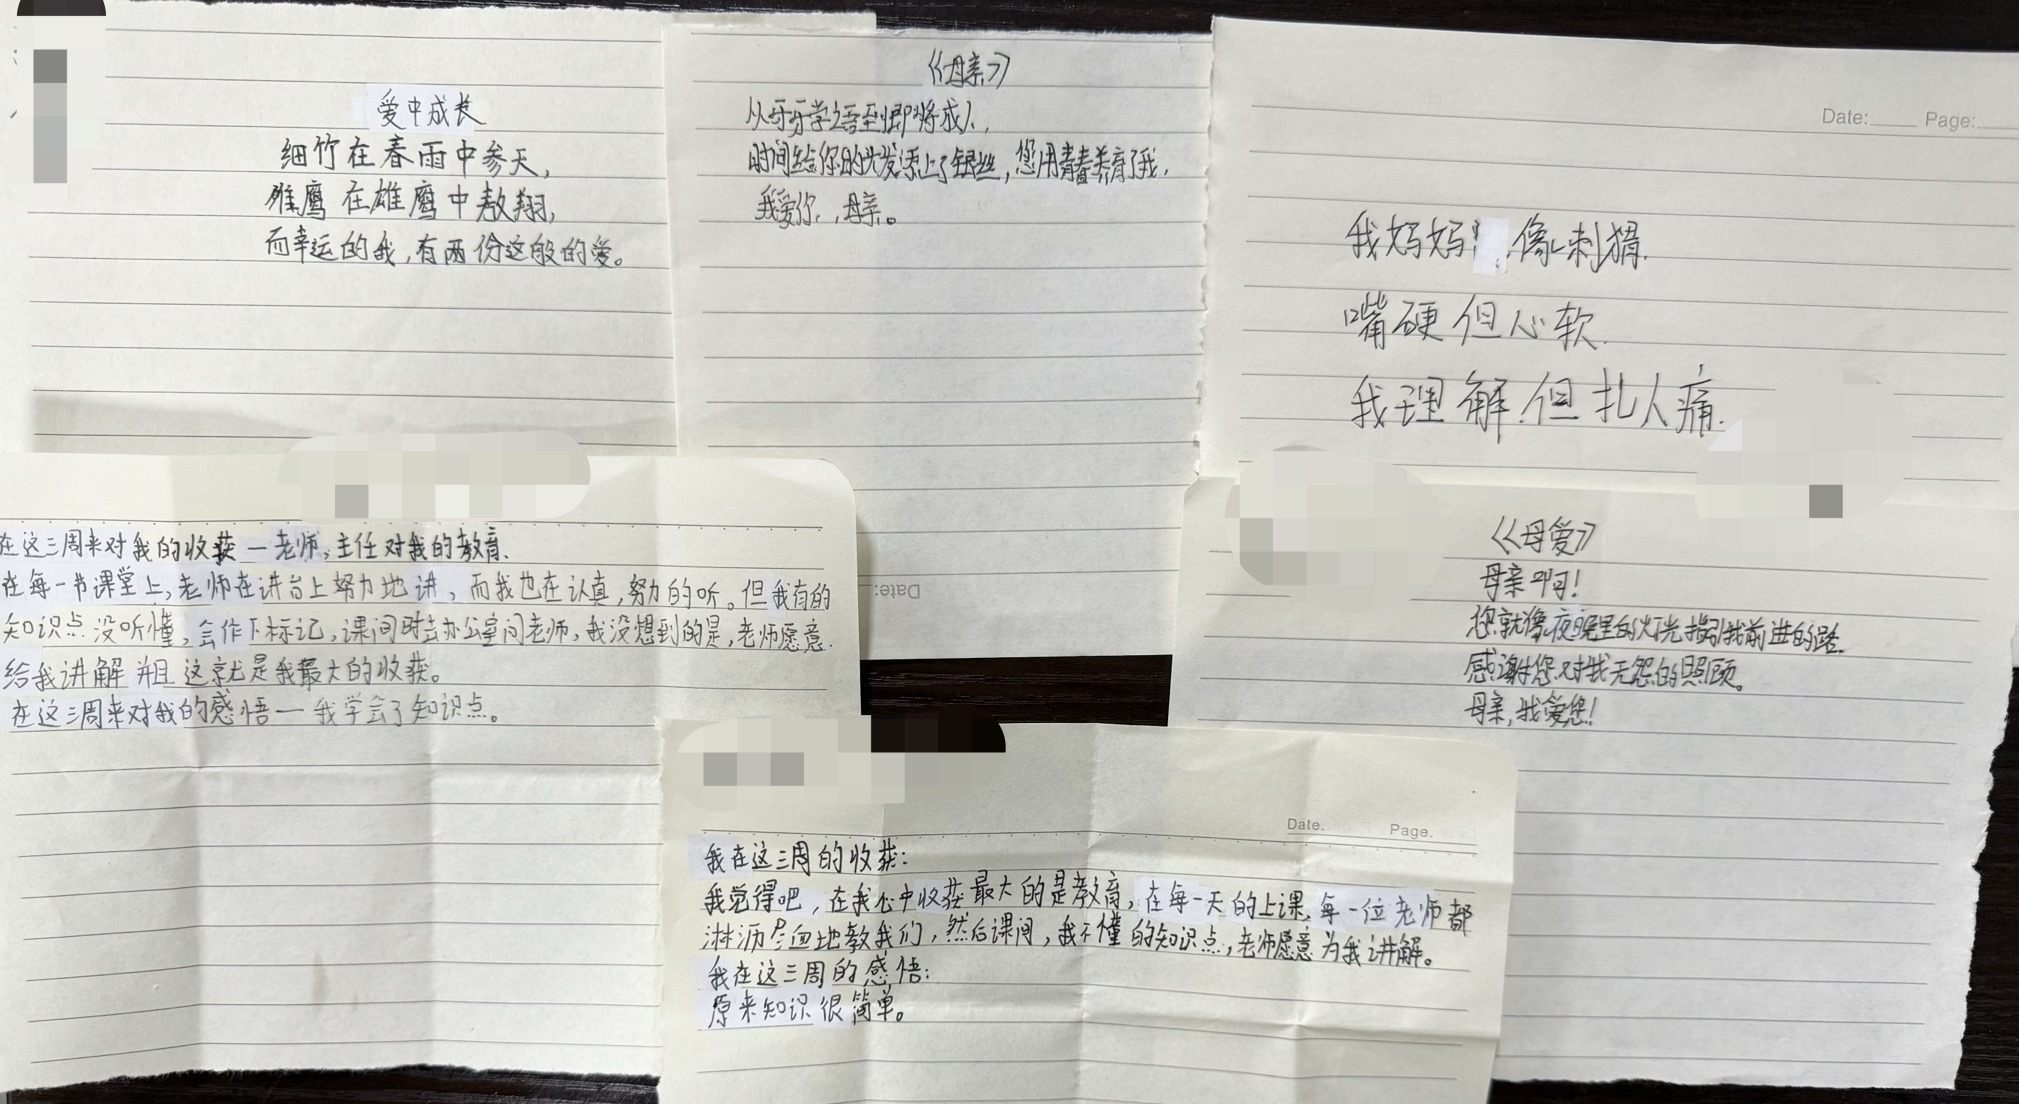 爱中成长
细竹在春雨中参天，
雏鹰在雄鹰中敖翔，
而幸运的我，有两份这般的爱。
《母亲》
从牙牙学语到即将成人，
时间给你的头发添上了银丝，您用青春养育了我，
我爱你，母亲。
Date: Page:
我妈妈 像刺猬.
嘴硬但心软.
我理解.但扎人痛.
在这三周来对我的收获一老师,主任对我的教育.
在每一节课堂上,老师在讲台上努力地讲,而我也在认真,努力的听。但我有的
知识点没听懂,会作下标记,课间时去办公室问老师,我没想到的是,老师愿意.
给我讲解 并且 这就是我最大的收获。
在这三周来对我的感悟一我学会了知识点。
Date:
《母爱》
母亲啊!
您就像夜晚里的灯光指引我前进的路.
感谢您对我无怨的照顾。
母亲,我爱您!
Date. Page.
我在这三周的收获:
我觉得吧,在我心中收获最大的是教育,在每一天的上课,每一位老师都
淋沥尽血地教我们,然后课间,我不懂的知识点,老师愿意为我讲解。
我在这三周的感悟:
原来知识很简单。